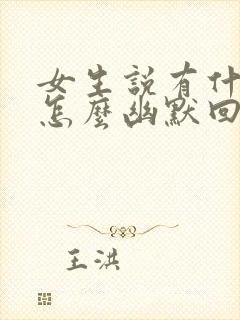 女生説有什
怎麼幽默回
王洪